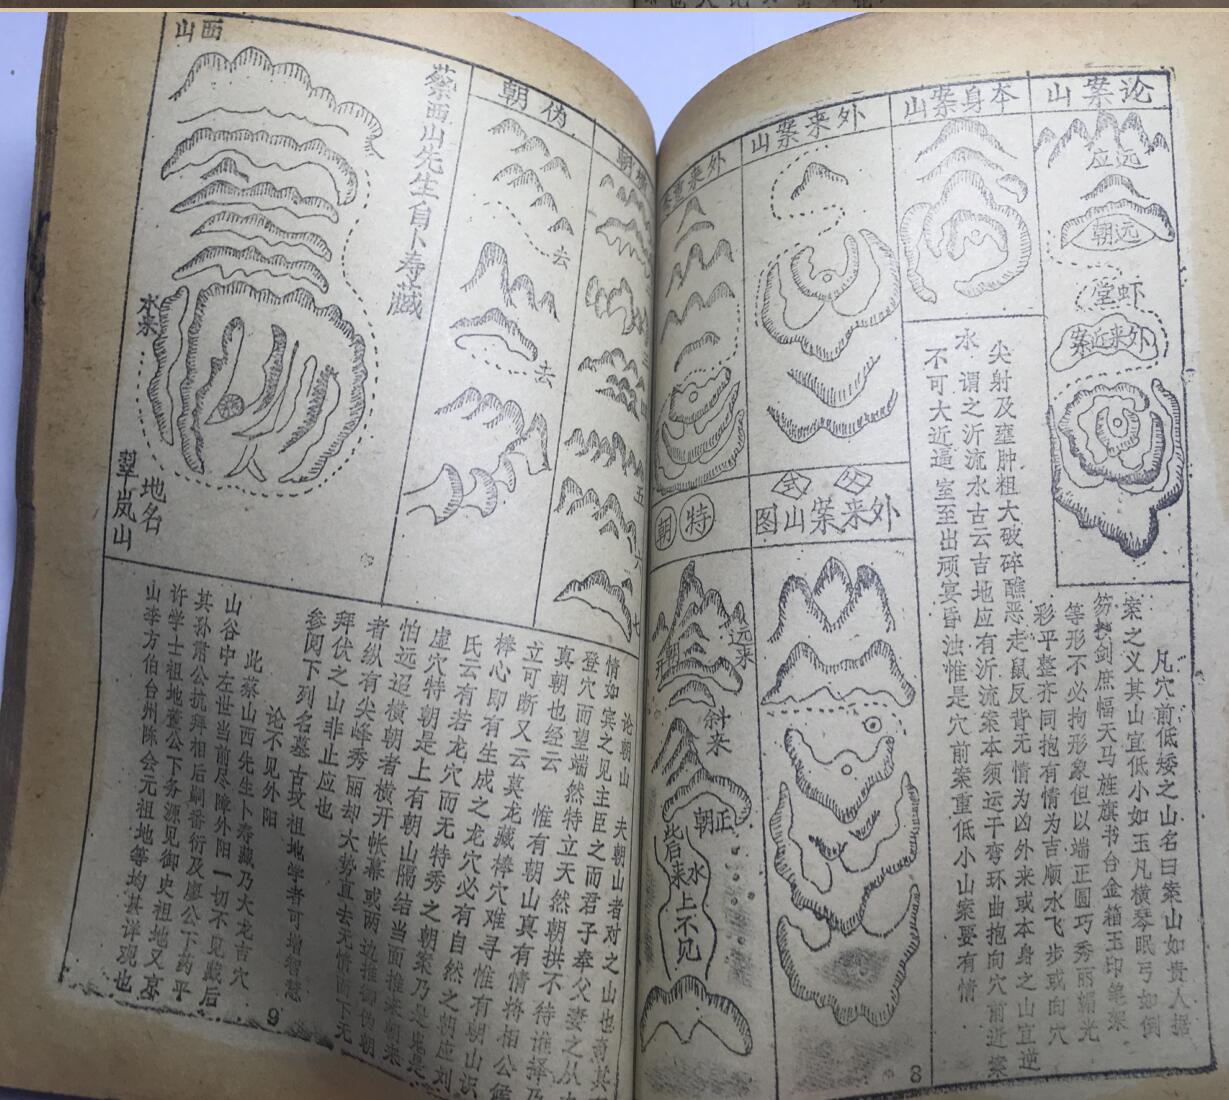 论案山
远应
远朝
虾堂
外来近案
凡穴前低矮之山名曰案山如贵人据
案之义其山宜低小如玉几横琴眠弓如倒
笏按剑庶幅天马旌旗书台金箱玉印笔架
等形不必拘形象但以端正圆巧秀丽媚光
彩平整齐同抱有情为吉顺水飞步或向穴
尖射及壅肿粗大破碎醮恶走鼠反背无情为凶外来或本身之山宜逆
水谓之沂流水古云吉地应有沂流案本须运干弯环曲抱向穴前近案
不可大近逼室至出顽宴昏浊惟是穴前案重低小山案要有情
本身案山
外来案山
父式
外来案山图
外来重案
特朝
远来
斜来
正朝
皆后来水上不见
8
横朝
三
五
六
七
伪朝
去
去
论朝山
夫朝山者对之山也
情如宾之见主臣之而君子奉父妻之从
登穴而望端然特立天然朝拱不待谁择乃
真朝也经云
惟有朝山真有情将相公侯
立可断又云莫龙藏棒穴难寻惟有朝山识
棒心即有生成之龙穴必有自然之朝应刘
氏云有若龙穴而无特秀之朝案乃是鬼是
虚穴特朝是上有朝山隔结当面推来朝来
怕远迢横朝者横开帐幕或两边推
者纵有尖峰秀丽却大势直去无情而下无
拜伏之山非止应也
参阅下列名墓古坟祖地学者可增智慧
论不见外阳
此蔡山西先生卜寿藏乃大龙吉穴
山谷中左世当前尽障外阳一切不见藏后
其孙肃公抗拜相后嗣番衍及廖公下药平
许学士祖地董公下务源见御史祖地又京
山李方伯台州陈会元祖地等均甚详观也
蔡西山先生自卜寿藏
西山
水来
地名
翠岚山
9